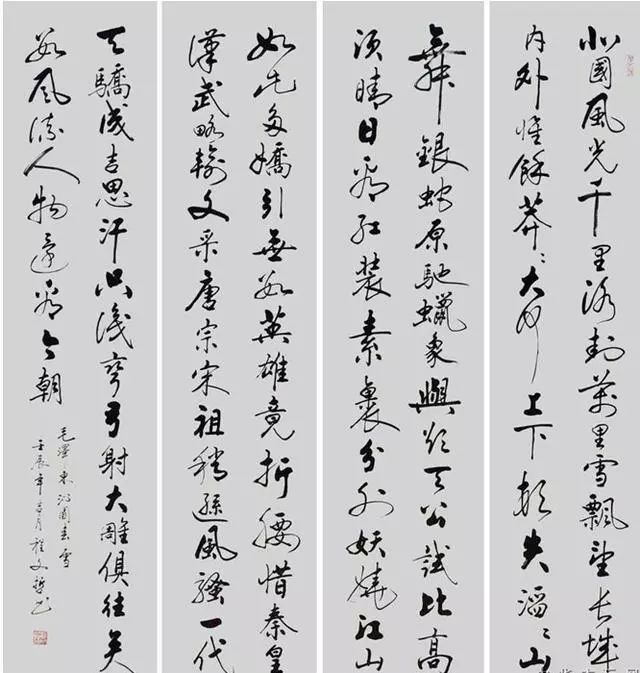 北國風光千里冰封萬里雪飄望長城
内外惟餘莽ミ大河上下頓失滔ミ山
舞銀蛇原馳蠟象與欲天公試比高
須晴日看紅裝素裹分外妖嬈江山
如此多嬌引無數英雄竟折腰惜秦皇
漢武略輸文采唐宗宋祖稍遜風騷一代
天驕成吉思汗只識彎弓射大雕俱往矣
數風流人物還看今朝
毛澤東沁園春雪
壬辰年月程文哲书